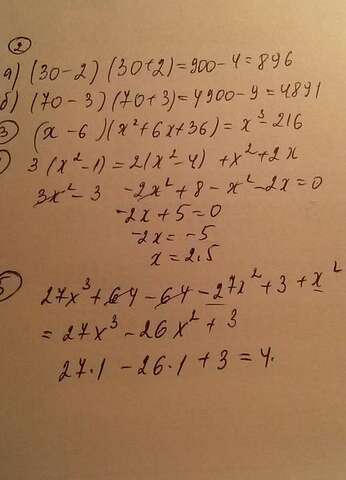 2
а) (30-2) (30+2)=900-4=896
б) (70-3) (70+3)=4900-9=4891
3 (x-6)(x²+6x+36)=x³-216
3(x²-1)=2(x²-4)+x²+2x
3x²-3 -2x²+8-x²-2x=0
-2x+5=0
-2x=-5
x=2.5
5 27x³+64-64-27x²+3+x²
=27x³-26x²+3
27·1-26·1+3=4.